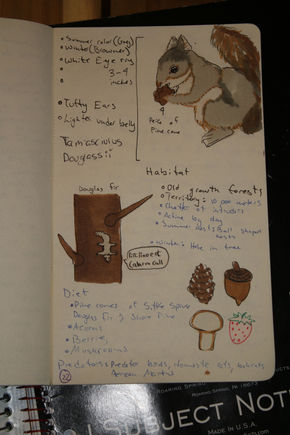 Summer color (Grey)
Winter (Browner)
White Eye ring
3-4
inches
Tufty Ears
Lighter under belly
Tamiasciurus
Douglasii
Piece of
Pine cone
Douglas fir
Habitat
Old growth forests
Territory: 10,000 meters
Chatter at intruders
Active by day
Summer nests Ball shaped
nests
Winter: Hole in tree
Diet
Pine cones of Sitka Spruce
Douglas Fir & Shore Pine
Acorns
Berries
Mushrooms
Predators: Predator birds, domestic cats, bobcats,
American Martens
22
ROARING SPRING
ROARING SPRING, PA 16673
1 SUBJECT NOT
MADE IN U.S.A.